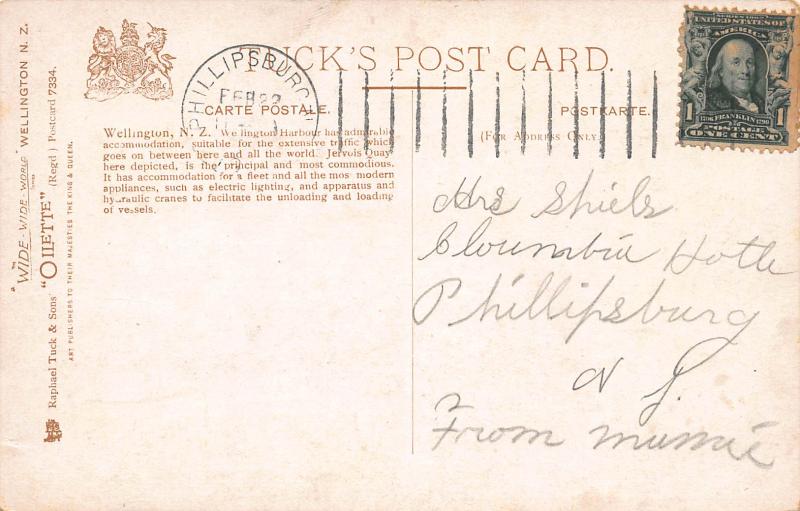 TUCK'S POST CARD.
CARTE POSTALE.
POSTKARTE.
(For Address Only)
PHILLIPSBURG
FEB 22
SERIES 1902
UNITED STATES OF
AMERICA
1 1
1706 FRANKLIN 1790
POSTAGE
ONE CENT
Wellington, N. Z. Wellington Harbour has admirable
accommodation, suitable for the extensive traffic which
goes on between here and all the world. Jervois Quay
here depicted, is the principal and most commodious.
It has accommodation for a fleet and all the most modern
appliances, such as electric lighting, and apparatus and
hydraulic cranes to facilitate the unloading and loading
of vessels.
Hrs Shiels
Cloumbia Hotle
Phillipsburg
N J.
From mumie
"WIDE-WIDE-WORLD" SERIES WELLINGTON N. Z.
Raphael Tuck & Sons' "OILETTE" (Regd.) Postcard 7334.
ART PUBLISHERS TO THEIR MAJESTIES THE KING & QUEEN.